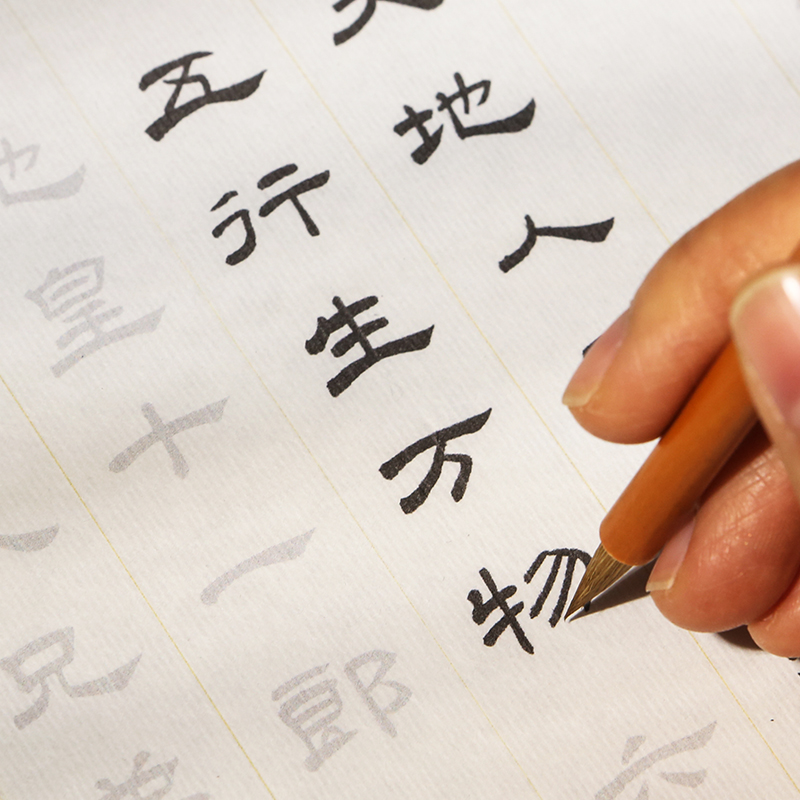 天地人
五行生万物六
地皇十一郎
兄弟